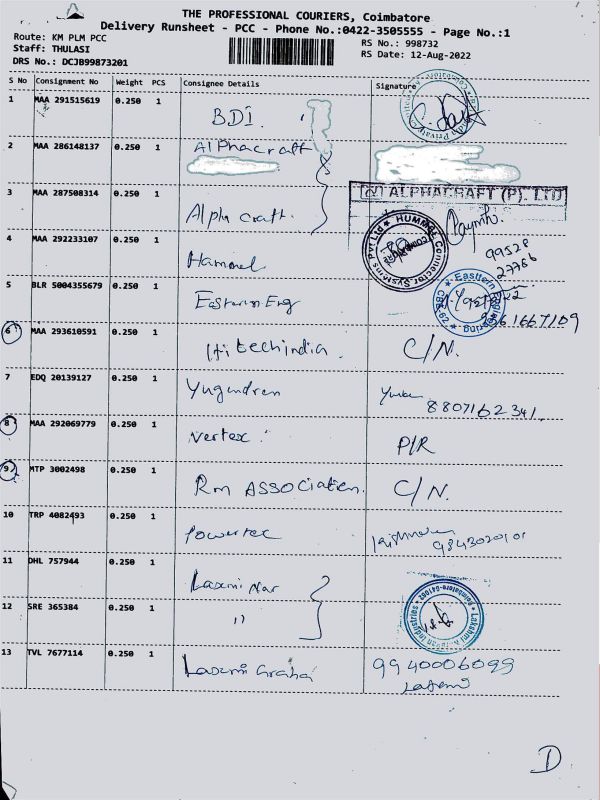 THE PROFESSIONAL COURIERS, Coimbatore
Delivery Runsheet - PCC - Phone No.:0422-3505555 - Page No.:1
Route: KM PLM PCC
RS No.: 998732
Staff: THULASI
RS Date: 12-Aug-2022
DRS No.: DCJB99873201
S No Consignment No Weight PCS Consignee Details Signature
1 MAA 291515619 0.250 1 BDI
2 MAA 286148137 0.250 1 AlPhacraft
(x) ALPHACRAFT (P). LTD
3 MAA 287508314 0.250 1 Alpha craft.
HUMMEL Connector Systems Pvt Ltd
4 MAA 292233107 0.250 1 Hammel 99528
27786
5 BLR 5004355679 0.250 1 Eastern Eng
Eastern Engineering CBE-62
6 MAA 293610591 0.250 1 Hitechindia. C/N.
7 EDQ 20139127 0.250 1 Yugendren
8807162341.
8 MAA 292069779 0.250 1 Vertex P/R
9 MTP 3002498 0.250 1 Rm ASSociation. C/N.
10 TRP 4082493 0.250 1 Powertec
9843020101
11 DHL 757944 0.250 1 Laxmi Nar
12 SRE 365384 0.250 1 "
13 TVL 7677114 0.250 1 Laxmi Graha 9940006099
D